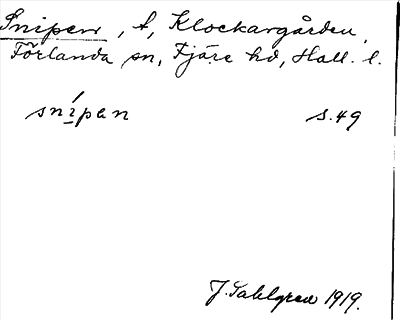 Snipen, t, Klockargården,
Förlanda sn, Fjäre hd, Hall. l.
snípan s. 49
J. Sahlgren 1919.